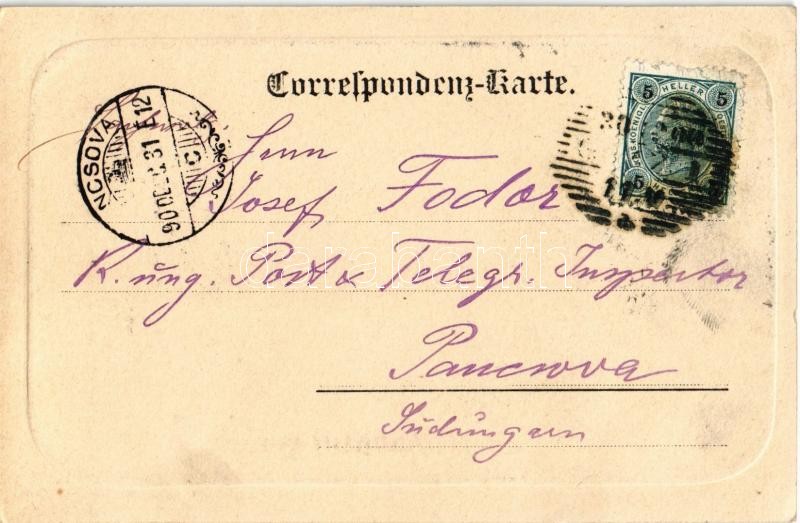 Correspondenz-Karte.
Herrn
Josef Fodor
K. ung. Post & Telegr. Inspector
Pancsova
Südungarn
5 HELLER 5
NCSOVA
darabanth